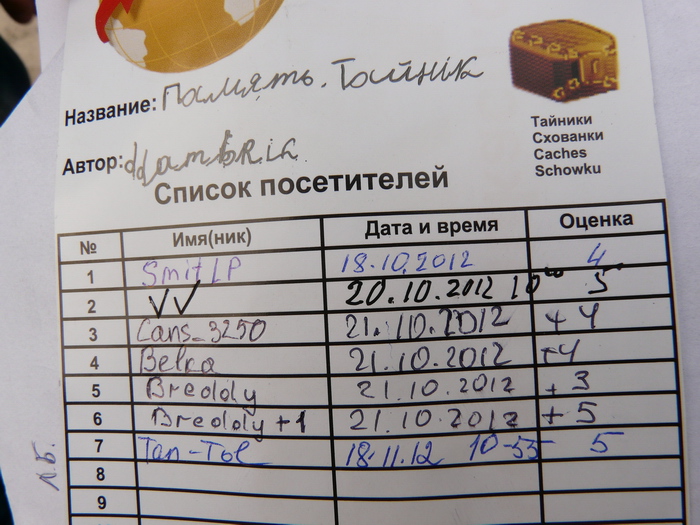 Название: Память. Тайнік
Автор: ddambRik
Тайники
Схованки
Caches
Schowku
Список посетителей
№ Имя(ник) Дата и время Оценка
1 Smit LP 18.10.2012 4
2 VV 20.10.2012 10⁰⁰ 5
3 Cans_3250 21.10.2012 +4
4 Belka 21.10.2012 +4
5 Breddy 21.10.2012 +3
6 Breddy+1 21.10.2012 +5
7 Tan-Tol 18.11.12 10-55 5
8
9
Л.Б.